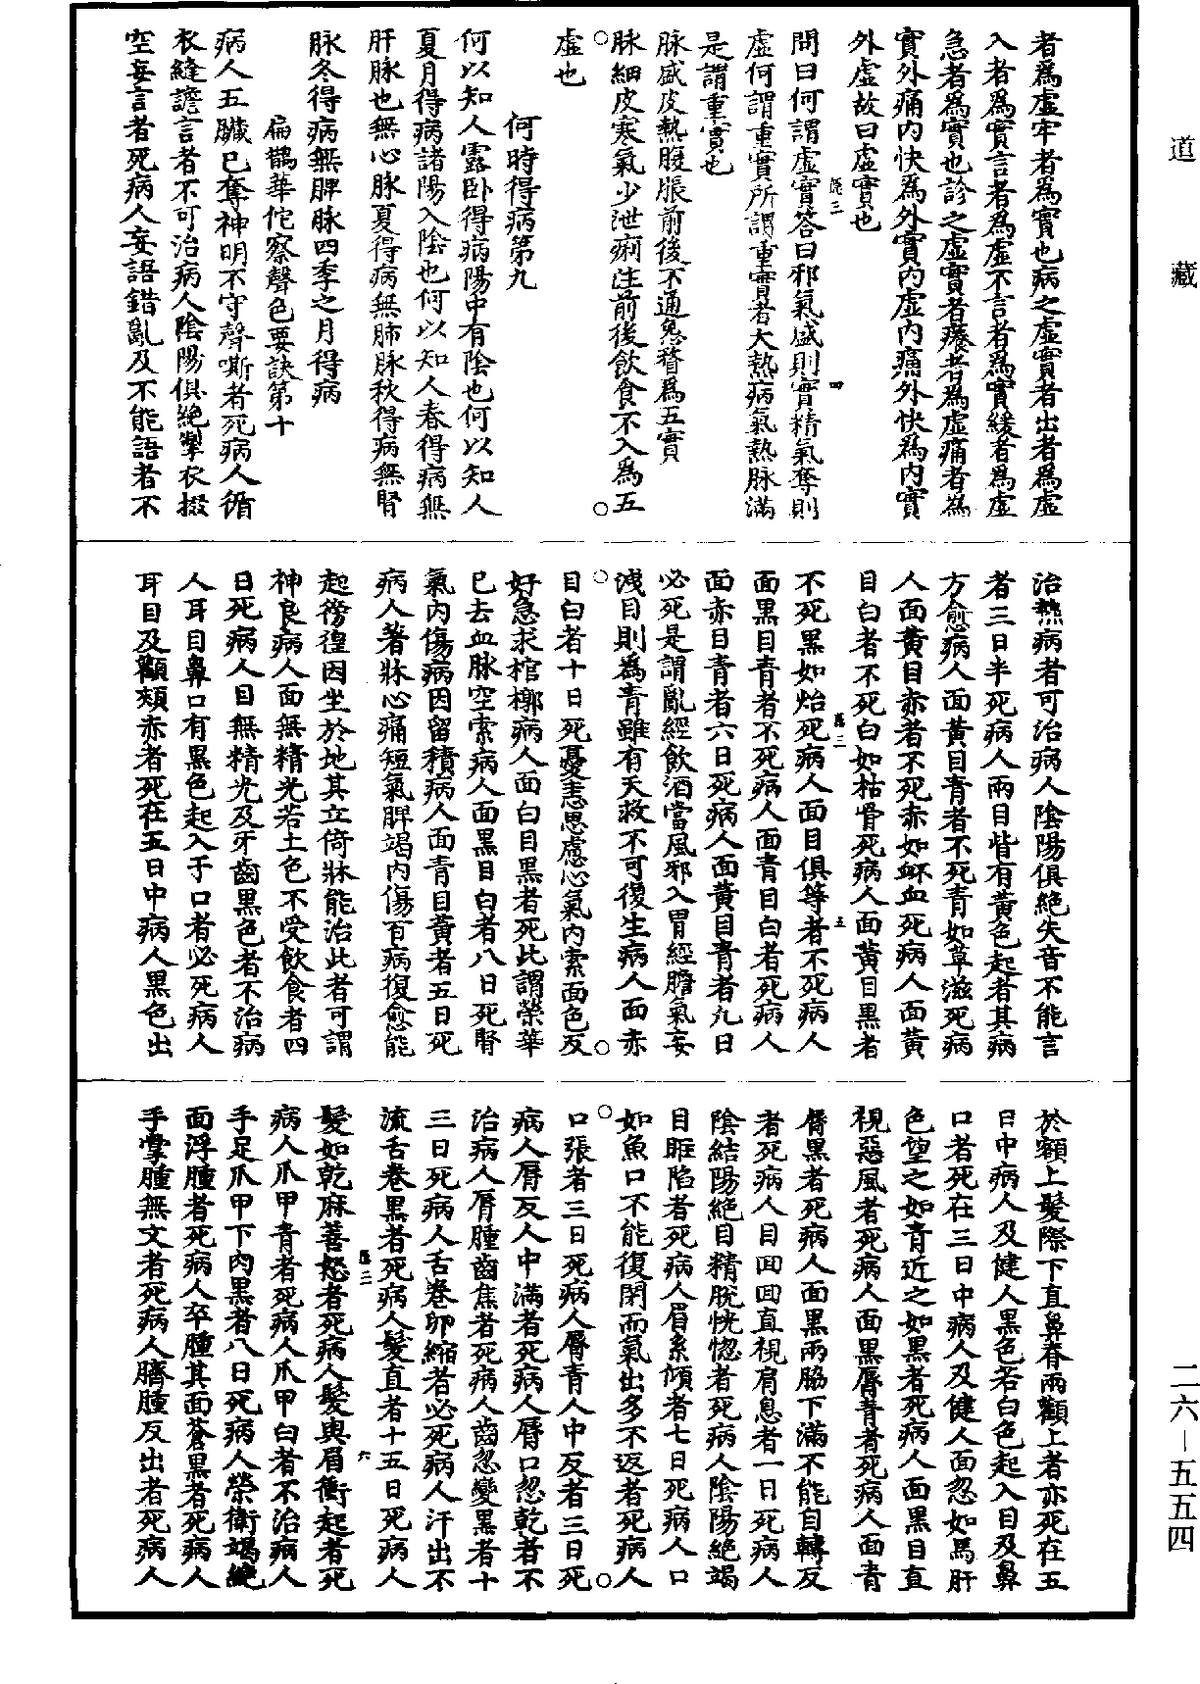 道藏
者爲虛牢者爲實也病之虛實者出者爲虛
入者爲實言者爲虛不言者爲實緩者爲虛
急者爲實也診之虛實者癢者爲虛痛者爲
實外痛內快爲外實內虛內痛外快爲內實
外虛故曰虛實也
問曰何謂虛實荅曰邪氣盛則實精氣奪則
虛何謂重實所謂重實者大熱病氣熱脉滿
是謂重實也
脉盛皮熱腹脹前後不通悗瞀爲五實
脉細皮寒氣少泄痢注前後飲食不入爲五
虛也
何時得病第九
何以知人露卧得病陽中有陰也何以知人
夏月得病諸陽入陰也何以知人春得病無
肝脉也無心脉夏得病無肺脉秋得病無腎
脉冬得病無脾脉四季之月得病
扁鵲華佗察聲色要訣第十
病人五臟已奪神明不守聲嘶者死病人循
衣縫譫言者不可治病人陰陽俱絕掣衣掇
空妄言者死病人妄語錯亂及不能語者不
治熱病者可治病人陰陽俱絕失音不能言
者三日半死病人兩目眥有黃色起者其病
方愈病人面黃目青者不死青如草滋死病
人面黃目赤者不死赤如衃血死病人面黃
目白者不死白如枯骨死病人面黃目黑者
不死黑如炲死病人面目俱等者不死病人
面黑目青者不死病人面青目白者死病人
面赤目青者六日死病人面黃目青者九日
必死是謂亂經飲酒當風邪入胃經膽氣妄
洩目則爲青雖有天救不可復生病人面赤
目白者十日死憂恚思慮心氣內索面色反
好急求棺槨病人面白目黑者死此謂榮華
已去血脉空索病人面黑目白者八日死腎
氣內傷病因留積病人面青目黃者五日死
病人著牀心痛短氣脾竭內傷百病復愈能
起徬徨因坐於地其立倚牀能治此者可謂
神良病人面無精光若土色不受飲食者四
日死病人目無精光及牙齒黑色者不治病
人耳目鼻口有黑色起入于口者必死病人
耳目及顴頰赤者死在五日中病人黑色出
於額上髮際下直鼻脊兩顴上者亦死在五
日中病人及健人黑色若白色起入目及鼻
口者死在三日中病人及健人面忽如馬肝
色望之如青近之如黑者死病人面黑目直
視惡風者死病人面黑脣青者死病人面青
脣黑者死病人面黑兩脇下滿不能自轉反
者死病人目回回直視肩息者一日死病人
陰結陽絕目精脫恍惚者死病人陰陽絕竭
目眶陷者死病人眉系傾者七日死病人口
如魚口不能復閉而氣出多不返者死病人
口張者三日死病人脣青人中反者三日死
病人脣反人中滿者死病人脣口忽乾者不
治病人脣腫齒焦者死病人齒忽變黑者十
三日死病人舌卷卵縮者必死病人汗出不
流舌卷黑者死病人髮直者十五日死病人
髮如乾麻善怒者死病人髮與眉衝起者死
病人爪甲青者死病人爪甲白者不治病人
手足爪甲下肉黑者八日死病人榮衛竭絕
面浮腫者死病人卒腫其面蒼黑者死病人
手掌腫無文者死病人臍腫反出者死病人
二六－五五四